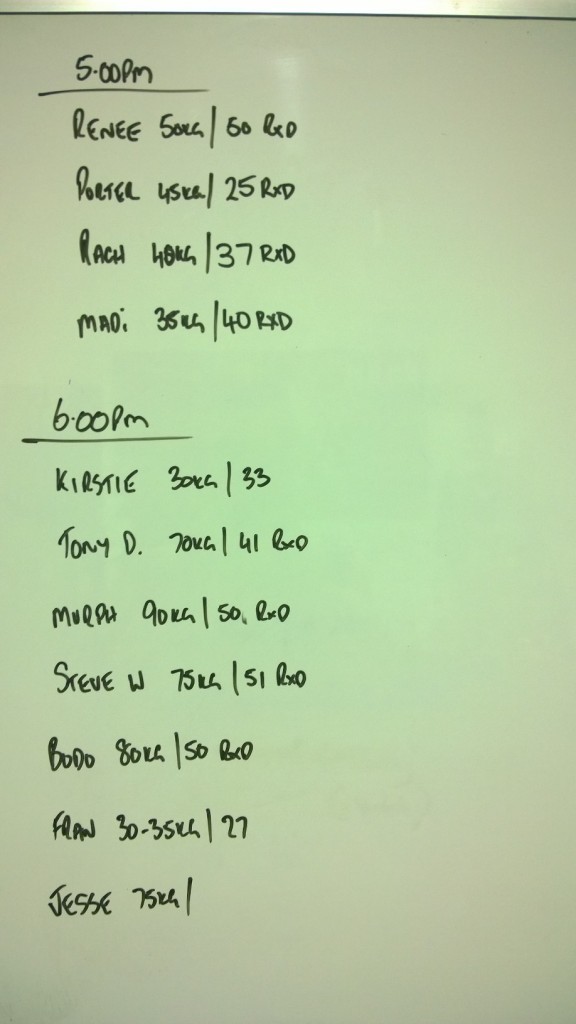 5.00PM
RENEE 50KG | 50 RXD
PORTER 45KG | 25 RXD
RACH 40KG | 37 RXD
MADi 35KG | 40 RXD
6.00PM
KIRSTIE 30KG | 33
TONY D. 70KG | 41 RXD
MURPH 90KG | 50 RXD
STEVE W 75KG | 51 RXD
BODO 80KG | 50 RXD
FRAN 30-35KG | 27
JESSE 75KG |